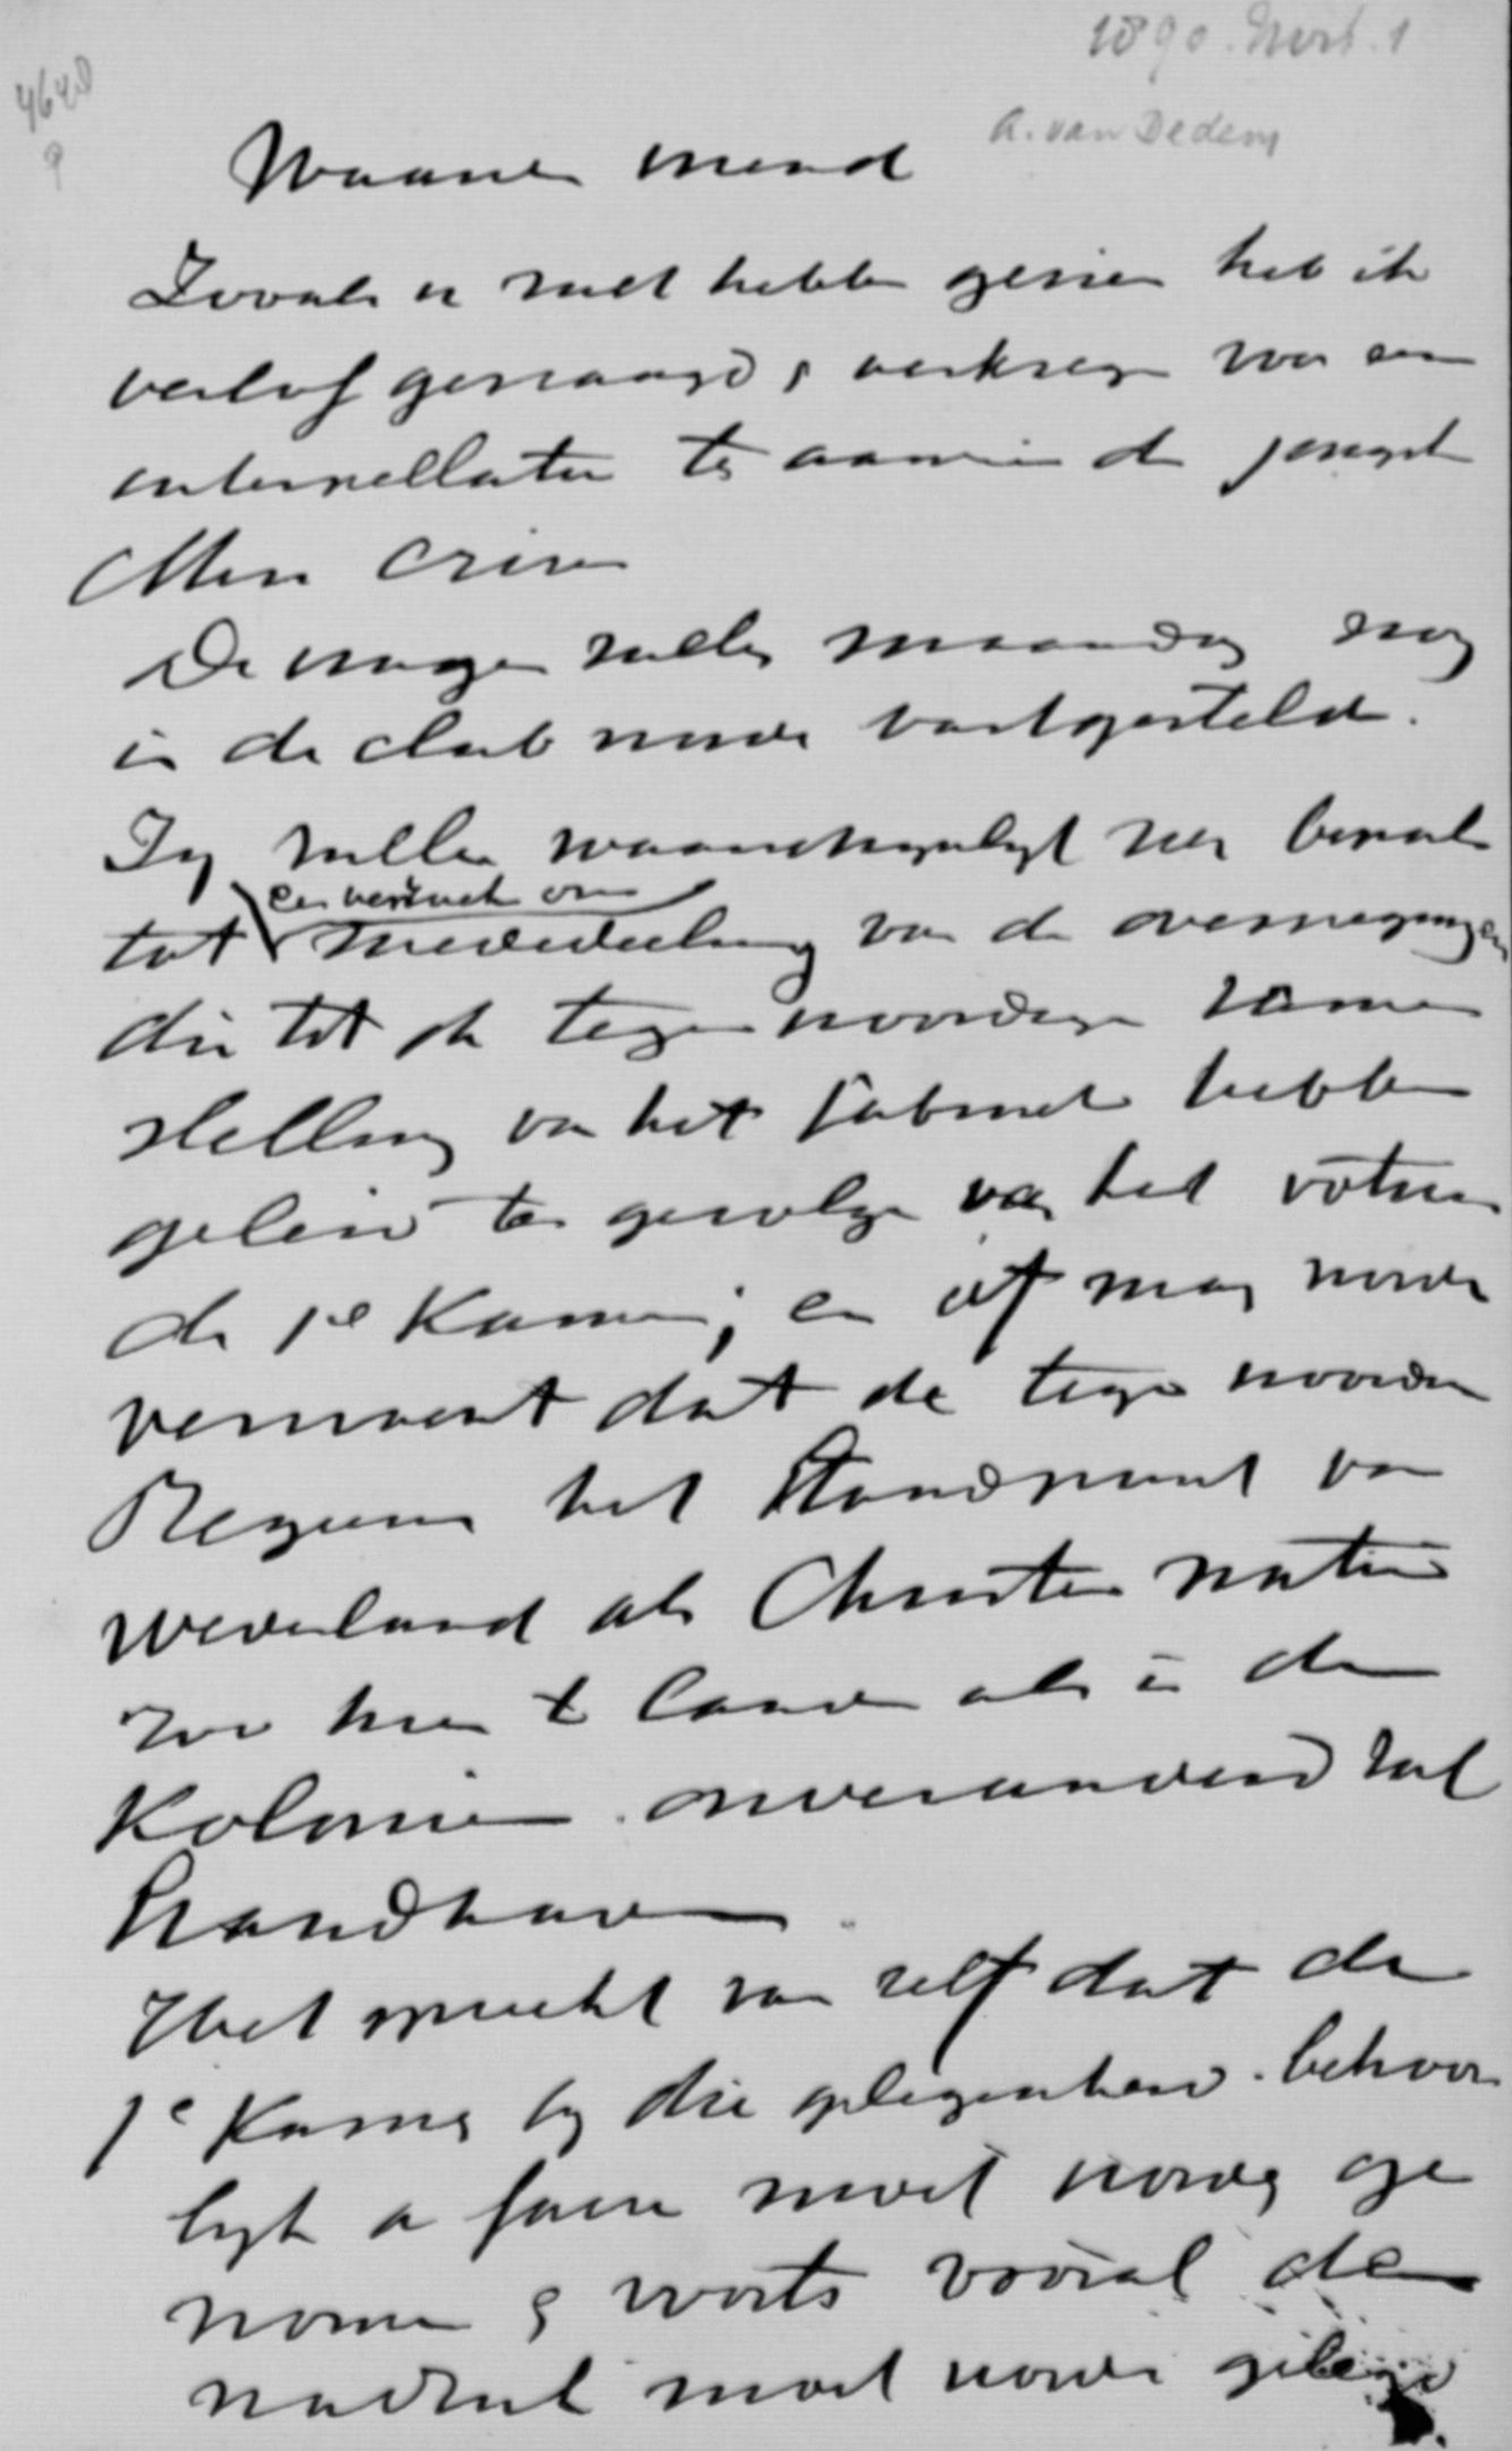 1890. Mrt. 1
4648
A. van Dedem
Waarde vriend
Zooals u zult hebben gezien heb ik
verlof gevraagd & verkregen voor een
interpellatie de jongste
Min. Crisis
De vragen zullen maandag nog
in de club worden vastgesteld.
Zij zullen waarschijnlijk zich bepalen
een verzoek om
tot mededeeling van de overwegingen
die tot de tegenwoordige samen
stelling van het Kabinet hebben
geleid ten gevolge van het votum
de 1e Kamer; en of mag worden
verwacht dat de tegenwoordige
Regering het Standpunt van
Nederland als Christen natie
zoo hier te lande als in de
Kolonien onveranderd zal
handhaven
Het spreekt van zelf dat de
1e Kamer bij die gelegenheid behoor
lijk a faire moet worden ge
nomen & voorts vooral de
nadruk moet worden gelegd